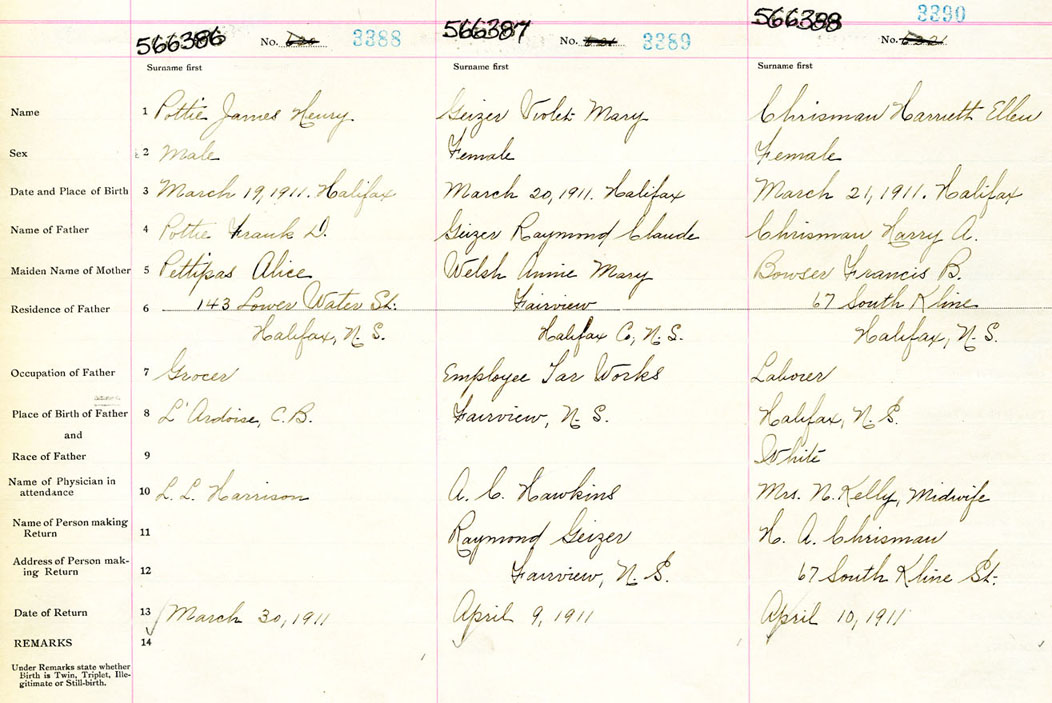 566386 No. 3388 566387 No. 3389 566388 No. 3390
Surname first Surname first Surname first
Name 1 Pottie James Henry Geizer Violet Mary Chrisman Harriett Ellen
Sex 2 Male Female Female
Date and Place of Birth 3 March 19, 1911. Halifax March 20, 1911. Halifax March 21, 1911. Halifax
Name of Father 4 Pottie Frank D. Geizer Raymond Claude Chrisman Harry A.
Maiden Name of Mother 5 Pettipas Alice Welsh Annie Mary Bowser Francis B.
Residence of Father 6 143 Lower Water St. Fairview 67 South Kline
Halifax, N.S. Halifax Co, N.S. Halifax, N.S.
Occupation of Father 7 Grocer Employee Tar Works Laborer
Place of Birth of Father 8 L'Ardoise, C.B. Fairview, N.S. Halifax, N.S.
and
Race of Father 9 White
Name of Physician in
attendance 10 L. L. Harrison A. C. Hawkins Mrs. N. Kelly, Midwife
Name of Person making
Return 11 Raymond Geizer H. A. Chrisman
Address of Person mak-
ing Return 12 Fairview, N.S. 67 South Kline St.
Date of Return 13 March 30, 1911 April 9, 1911 April 10, 1911
REMARKS 14
Under Remarks state whether
Birth is Twin, Triplet, Ille-
gitimate or Still-birth.